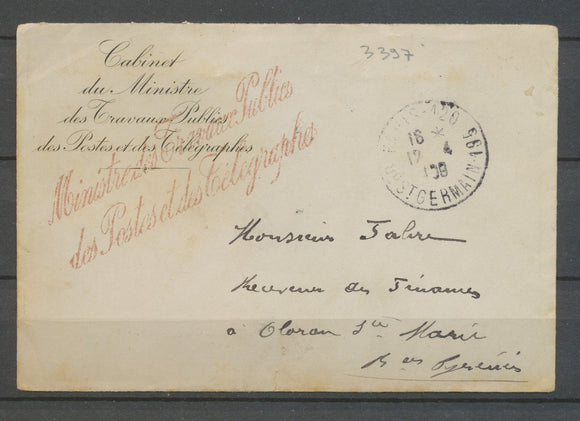 3397
Cabinet
du Ministre
des Travaux Publics
des Postes et des Télégraphes
Ministre des Travaux Publics
des Postes et des Télégraphes
PARIS-120
199
BD ST GERMAIN
18 *
12 4
09
Monsieur Fabre
Receveur des Finances
à Oloron Ste Marie
Bses Pyrénées